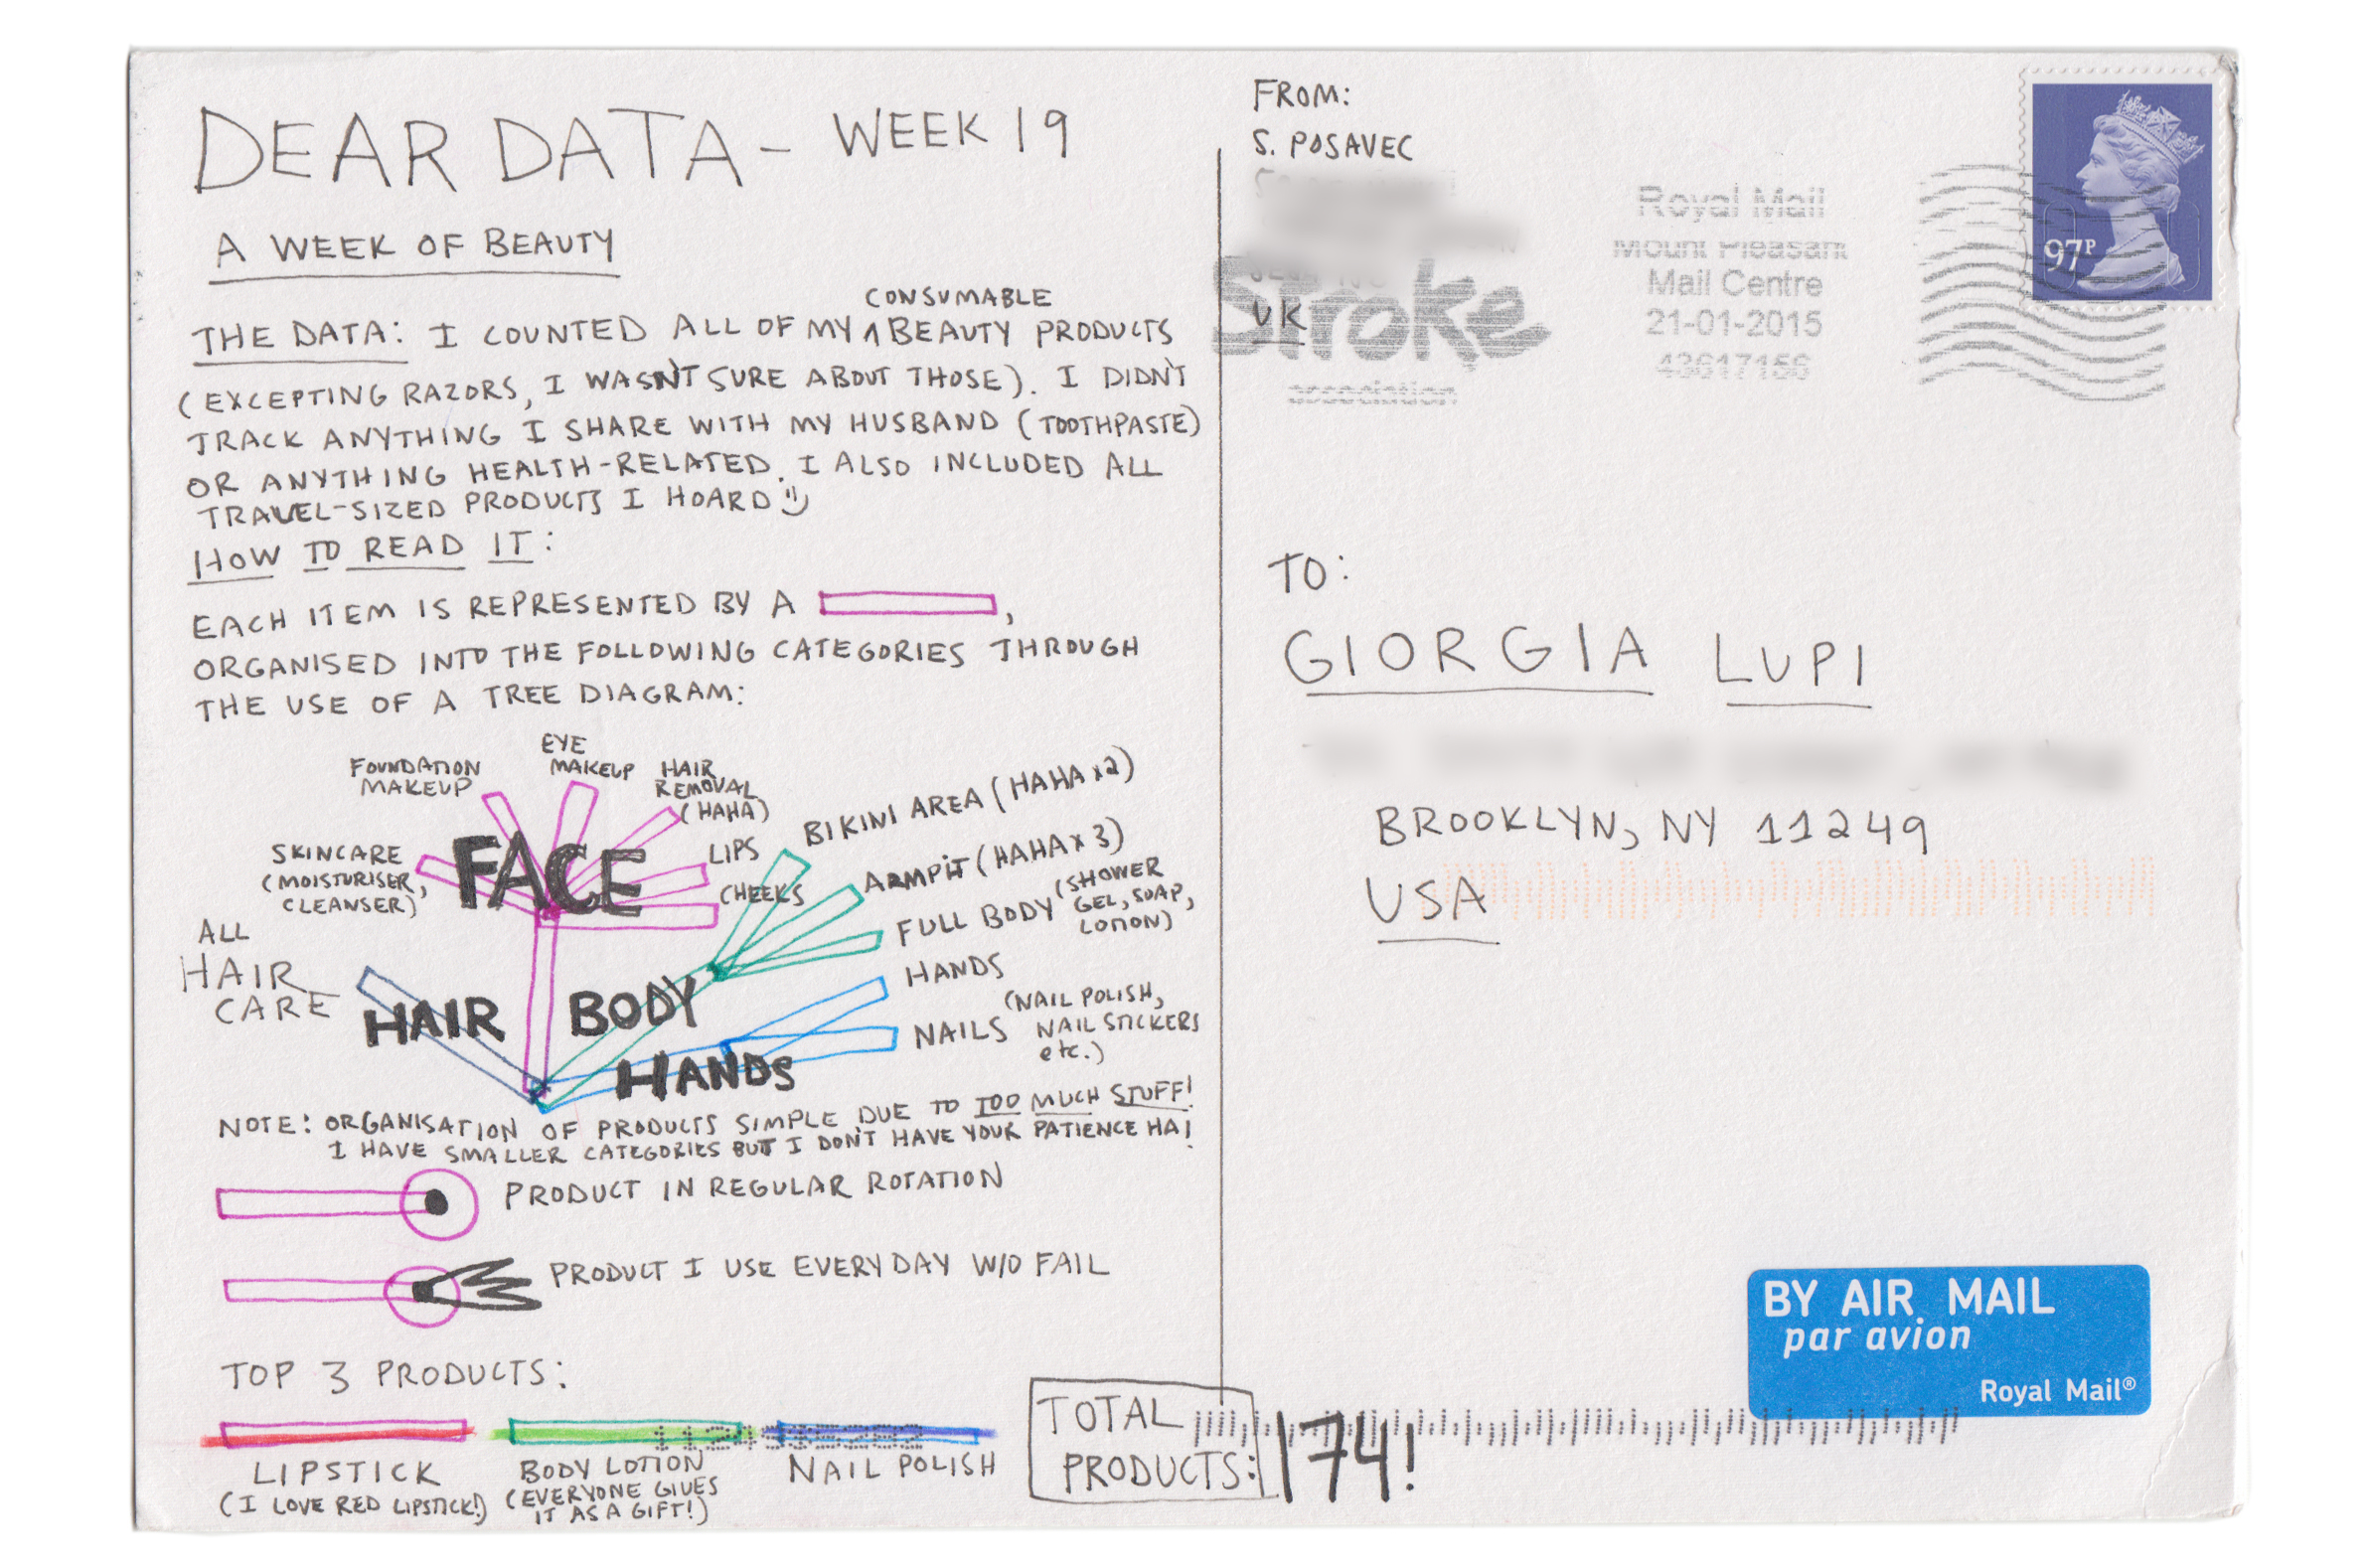 DEAR DATA - WEEK 19
A WEEK OF BEAUTY
CONSUMABLE
THE DATA: I COUNTED ALL OF MY ∧ BEAUTY PRODUCTS
(EXCEPTING RAZORS, I WASN'T SURE ABOUT THOSE). I DIDN'T
TRACK ANYTHING I SHARE WITH MY HUSBAND (TOOTHPASTE)
OR ANYTHING HEALTH-RELATED. I ALSO INCLUDED ALL
TRAVEL-SIZED PRODUCTS I HOARD
HOW TO READ IT:
EACH ITEM IS REPRESENTED BY A ,
ORGANISED INTO THE FOLLOWING CATEGORIES THROUGH
THE USE OF A TREE DIAGRAM:
ALL
HAIR
CARE
HAIR
FACE
SKINCARE
(MOISTURISER,
CLEANSER)
FOUNDATION
MAKEUP
EYE
MAKEUP
HAIR
REMOVAL
(HAHA)
LIPS
CHEEKS
BODY
BIKINI AREA (HAHA x2)
ARMPIT (HAHA x 3)
FULL BODY (SHOWER
GEL, SOAP,
LOTION)
HANDS
HANDS
NAILS (NAIL POLISH,
NAIL STICKERS
etc.)
NOTE: ORGANISATION OF PRODUCTS SIMPLE DUE TO TOO MUCH STUFF!
I HAVE SMALLER CATEGORIES BUT I DON'T HAVE YOUR PATIENCE HA!
PRODUCT IN REGULAR ROTATION
PRODUCT I USE EVERYDAY W/O FAIL
TOP 3 PRODUCTS:
LIPSTICK
(I LOVE RED LIPSTICK!)
BODY LOTION
(EVERYONE GIVES
IT AS A GIFT!)
NAIL POLISH
TOTAL
PRODUCTS: 174!
FROM:
S. POSAVEC
UK
Stroke
association
Royal Mail
Mount Pleasant
Mail Centre
21-01-2015
43617156
97P
TO:
GIORGIA LUPI
BROOKLYN, NY 11249
USA
BY AIR MAIL
par avion
Royal Mail®